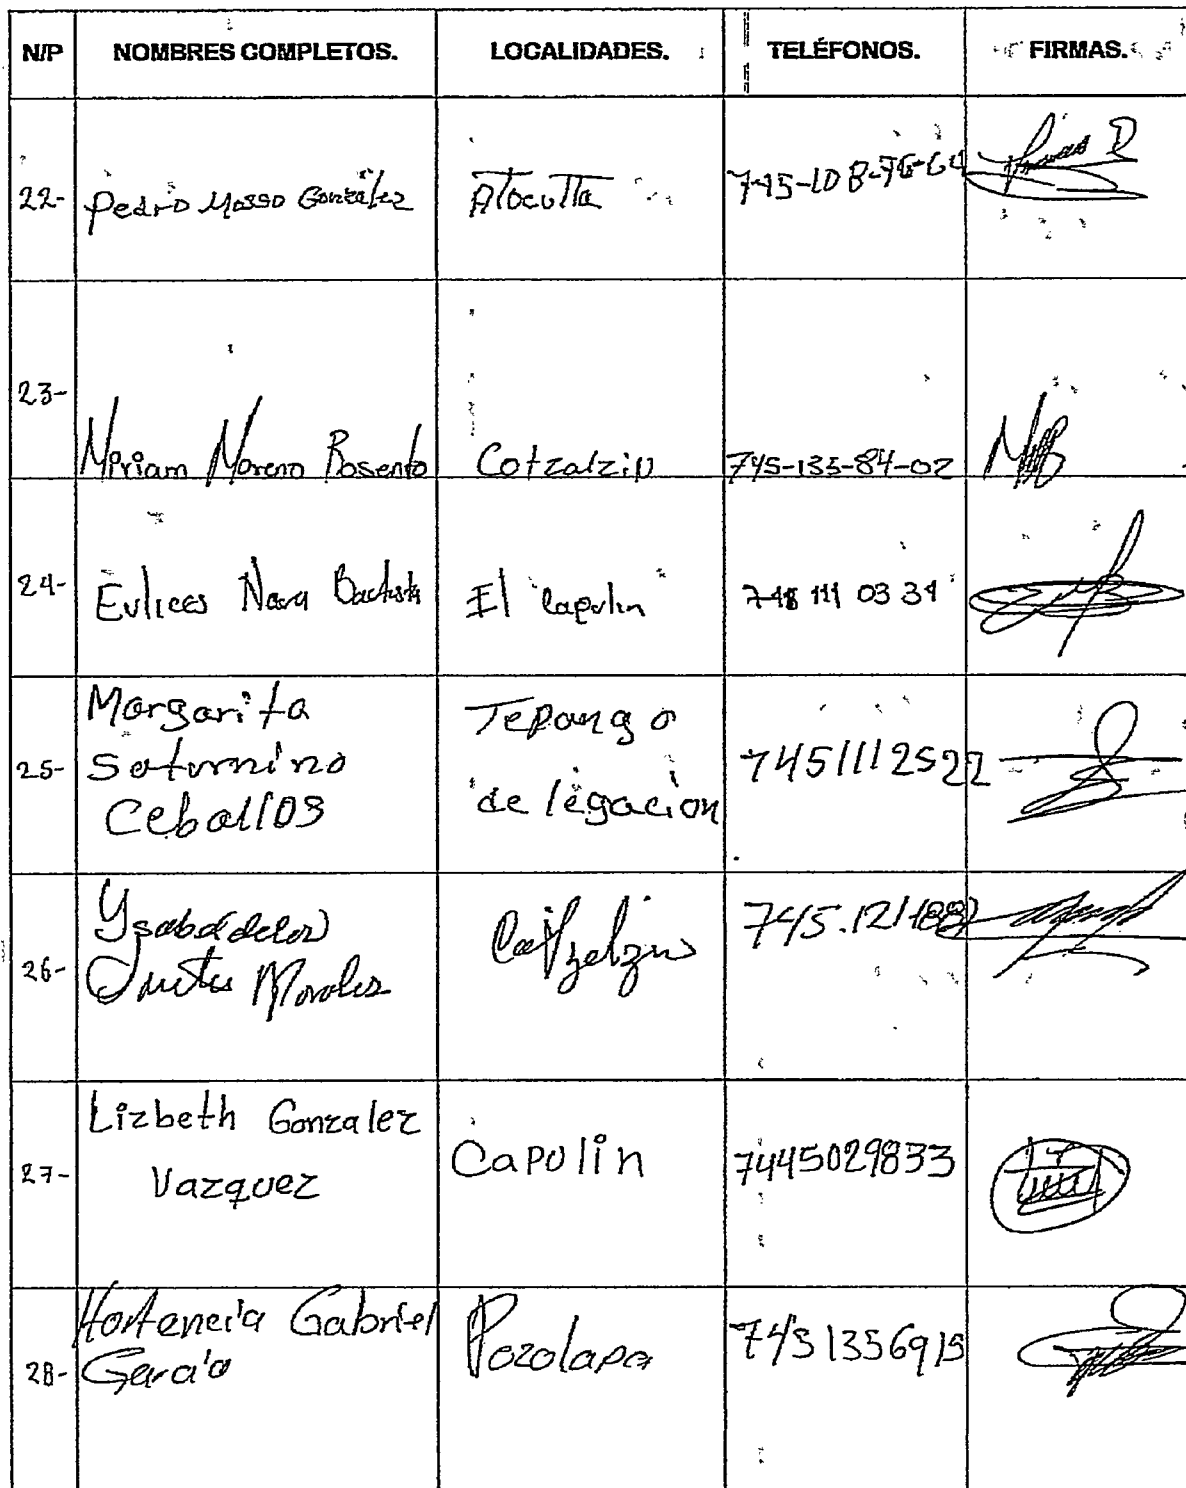 N/P NOMBRES COMPLETOS. LOCALIDADES. TELÉFONOS. FIRMAS.
22- Pedro Mosso González Atocutla 745-108-76-64
23- Miriam Moreno Rosento Cotzalzin 745-135-84-02
24- Evlices Nava Bautista El Capulin 745 111 03 31
25- Margarita Saturnino Ceballos Tepango delegación 7451112522
26- Ysabel de los Morales 745.121188
27- Lizbeth Gonzalez Vazquez Capulin 7445029833
28- Hortencia Gabriel Pozolapa 7451356915